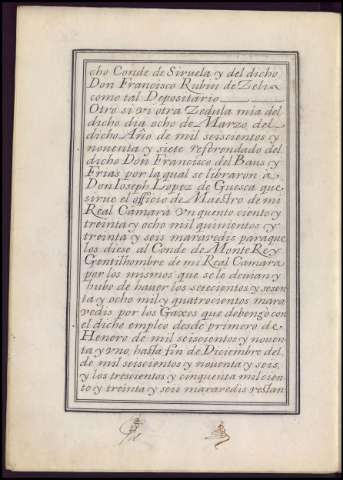 cho Conde de Siruela y del dicho
Don Francisco Rubin de Zelia
como tal Depositario
Otro si vi otra Zedula mia del
dicho dia ocho de Marzo del
dicho Año de mil seiscientos y
nouenta y siete referendado del
dicho Don Francisco del Baus y
Frias por la qual se libraron à
Don Ioseph Lopez de Guesca que
sirue el officio de Maestro de mi
Real Camara vn quento ciento y
treinta y ocho mil quinientos y
treinta y seis marauedis para que
los diese al Conde de Monte Rey
Gentilhombre de mi Real Camara
por los mismos que se le deuian y
hubo de hauer los setecientos y sesen
ta y ocho mil y quatrocientos mara
vedis por los Gaxes que debengò con
el dicho empleo desde primero de
Henero de mil seiscientos y nouen
ta y vno, hasta fin de Diciembre del
de mil seiscientos y nouenta y seis,
y los trescientos y cinquenta mil cien
to y treinta y seis marauedis restan